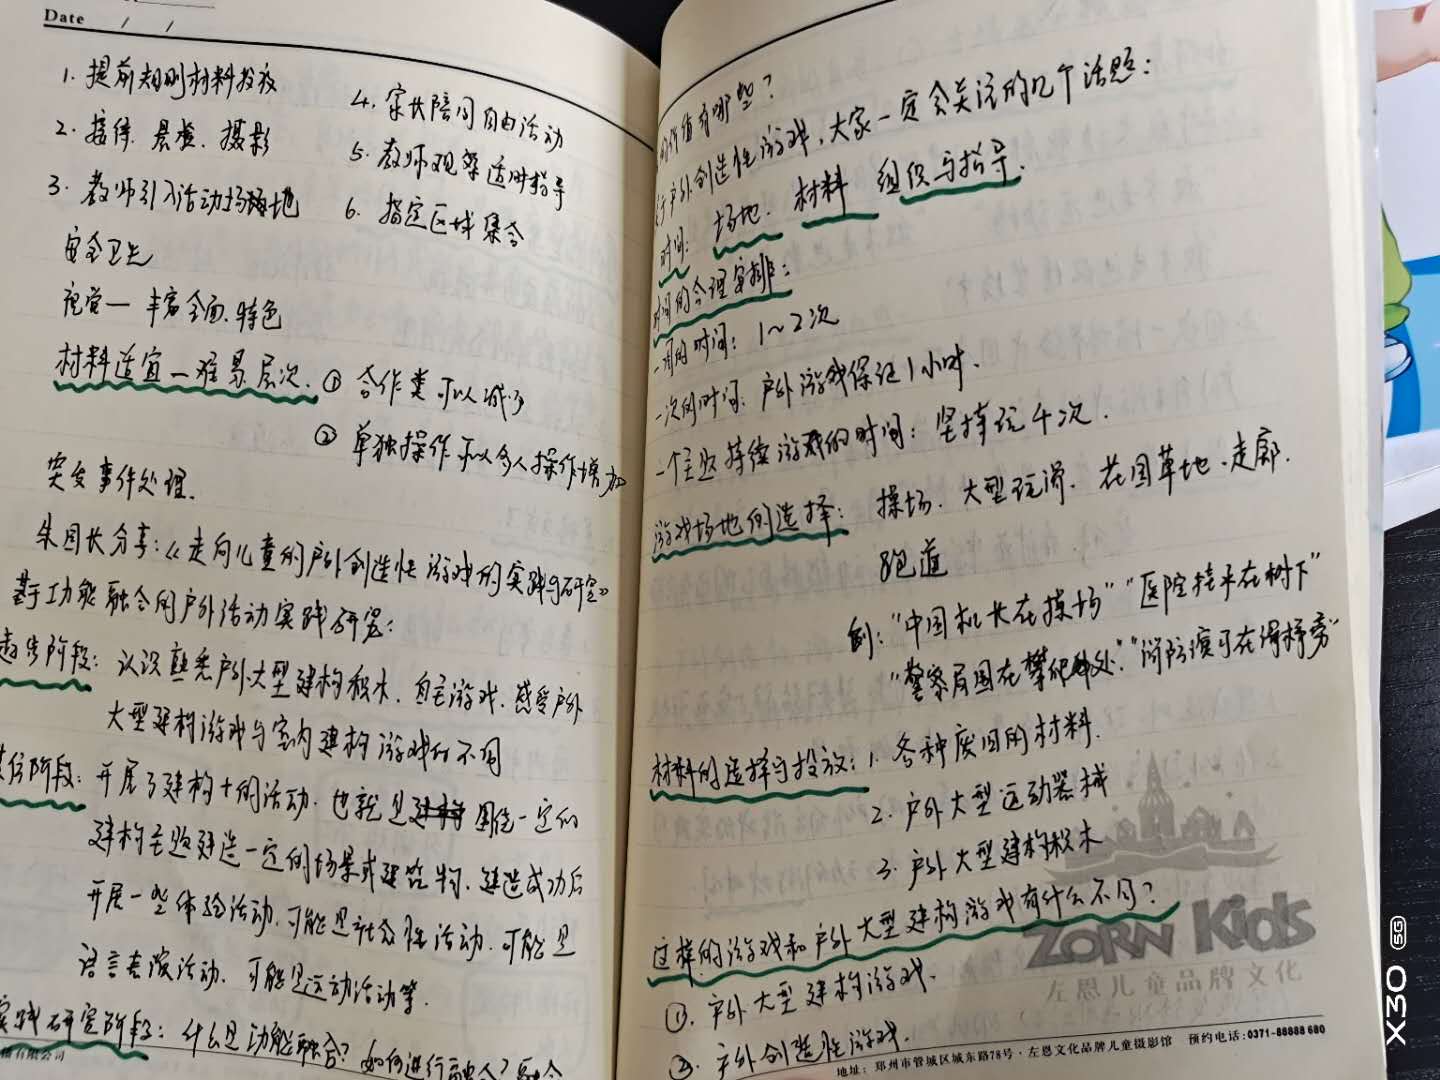 Date / /
1. 提前规则材料投放
2. 接待. 晨检. 摄影
3. 教师引入活动场地
4. 家长陪同自由活动
5. 教师观察适时指导
6. 指定区域集合
安全卫生
视觉一 丰富全面. 特色
材料适宜一难易层次. ① 合作类可以减少
② 单独操作可以多人操作增加
突发事件处理.
朱园长分享:《走向儿童的户外创造性游戏的实践与研究》
基于功能融合的户外活动实践研究:
起步阶段: 认识熟悉户外大型建构积木. 自主游戏. 感受户外
大型建构游戏与室内建构游戏的不同
阶段: 开展了建构+的活动. 也就是围绕一定的
建构主题建造一定的场景或建筑物. 建造成功后
开展一些体验活动. 可能是社会性活动. 可能是
语言表演活动. 可能是运动活动等.
实践研究阶段: 什么是功能融合? 如何进行融合? 融合
有限公司
的价值有哪些?
户外创造性游戏, 大家一定会关注的几个话题:
时间: 场地. 材料 组织与指导.
时间的合理安排:
一周的时间: 1~2次
一次的时间: 户外游戏保证1小时.
一个主题持续游戏的时间: 坚持玩4次.
游戏场地的选择: 操场. 大型玩滑. 花园草地. 走廊.
跑道
例: "中国机长在操场" "医院搭在树下"
"警察局围在攀爬处" "消防演习在滑梯旁"
材料的选择与投放: 1. 各种废旧的材料.
2. 户外大型运动器械
3. 户外大型建构积木
这样的游戏和户外大型建构游戏有什么不同?
①. 户外大型建构游戏.
②. 户外创造性游戏.
ZORN Kids
左恩儿童品牌文化
地址: 郑州市管城区城东路78号·左恩文化品牌儿童摄影馆 预约电话:0371-88888 680
X30 5G